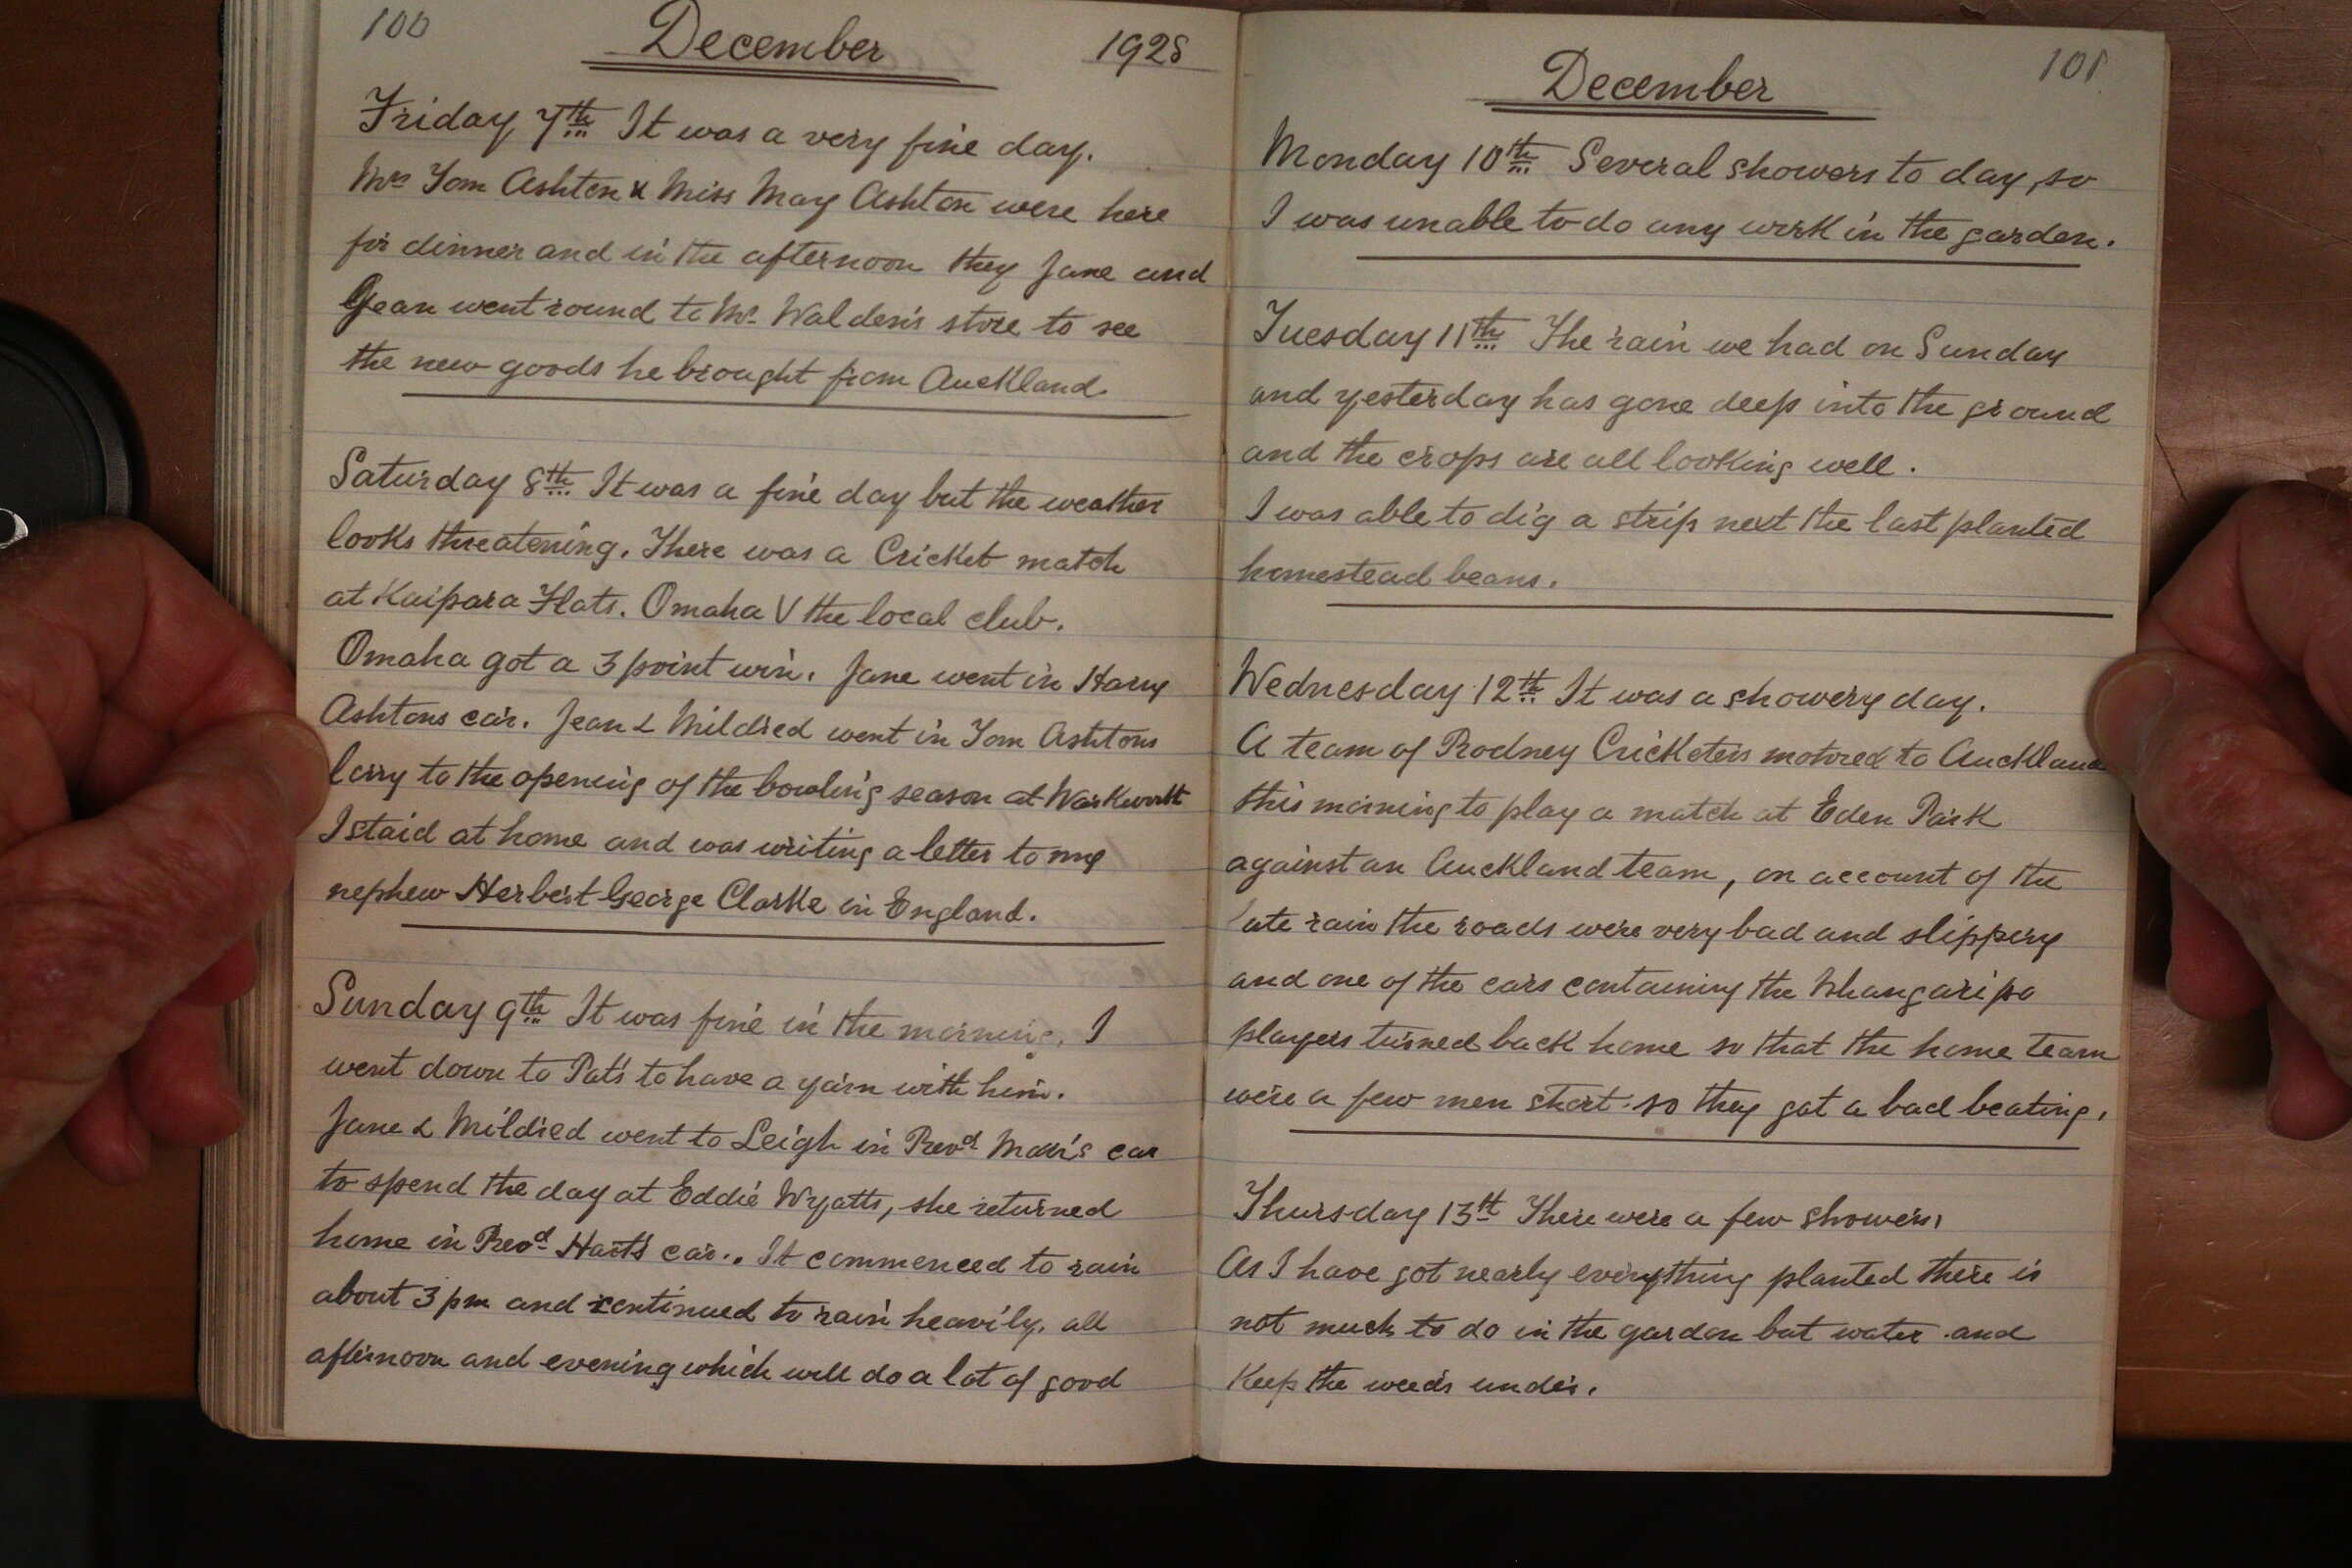 100
December 1928
Friday 7th It was a very fine day.
Mrs Tom Ashton & Miss May Ashton were here
for dinner and in the afternoon they Jane and
Jean went round to Mr Walden's store to see
the new goods he brought from Auckland.
Saturday 8th It was a fine day but the weather
looks threatening. There was a Cricket match
at Kaipara Flats. Omaha V the local club.
Omaha got a 3 point win. Jane went in Harry
Ashtons car. Jean & Mildred went in Tom Ashtons
lorry to the opening of the bowling season at Warkworth
I staid at home and was writing a letter to my
nephew Herbert George Clarke in England.
Sunday 9th It was fine in the morning. I
went down to Pat's to have a yarn with him.
Jane & Mildred went to Leigh in Revd car
to spend the day at Eddie Wyatts, she returned
home in Revd Hart's car.. It commenced to rain
about 3 pm and continued to rain heavily. all
afternoon and evening which will do a lot of good
101
December
Monday 10th Several showers to day, so
I was unable to do any work in the garden.
Tuesday 11th The rain we had on Sunday
and yesterday has gone deep into the ground
and the crops are all looking well.
I was able to dig a strip next the last planted
homestead beans.
Wednesday 12th It was a showery day.
A team of Rodney Cricketers motored to Auckland
this morning to play a match at Eden Park
against an Auckland team, on account of the
late rain the roads were very bad and slippery
and one of the cars containing the Whangaripo
players turned back home so that the home team
were a few men short. so they got a bad beating.
Thursday 13th There were a few showers,
As I have got nearly everything planted there is
not much to do in the garden but water and
Keep the weeds under.